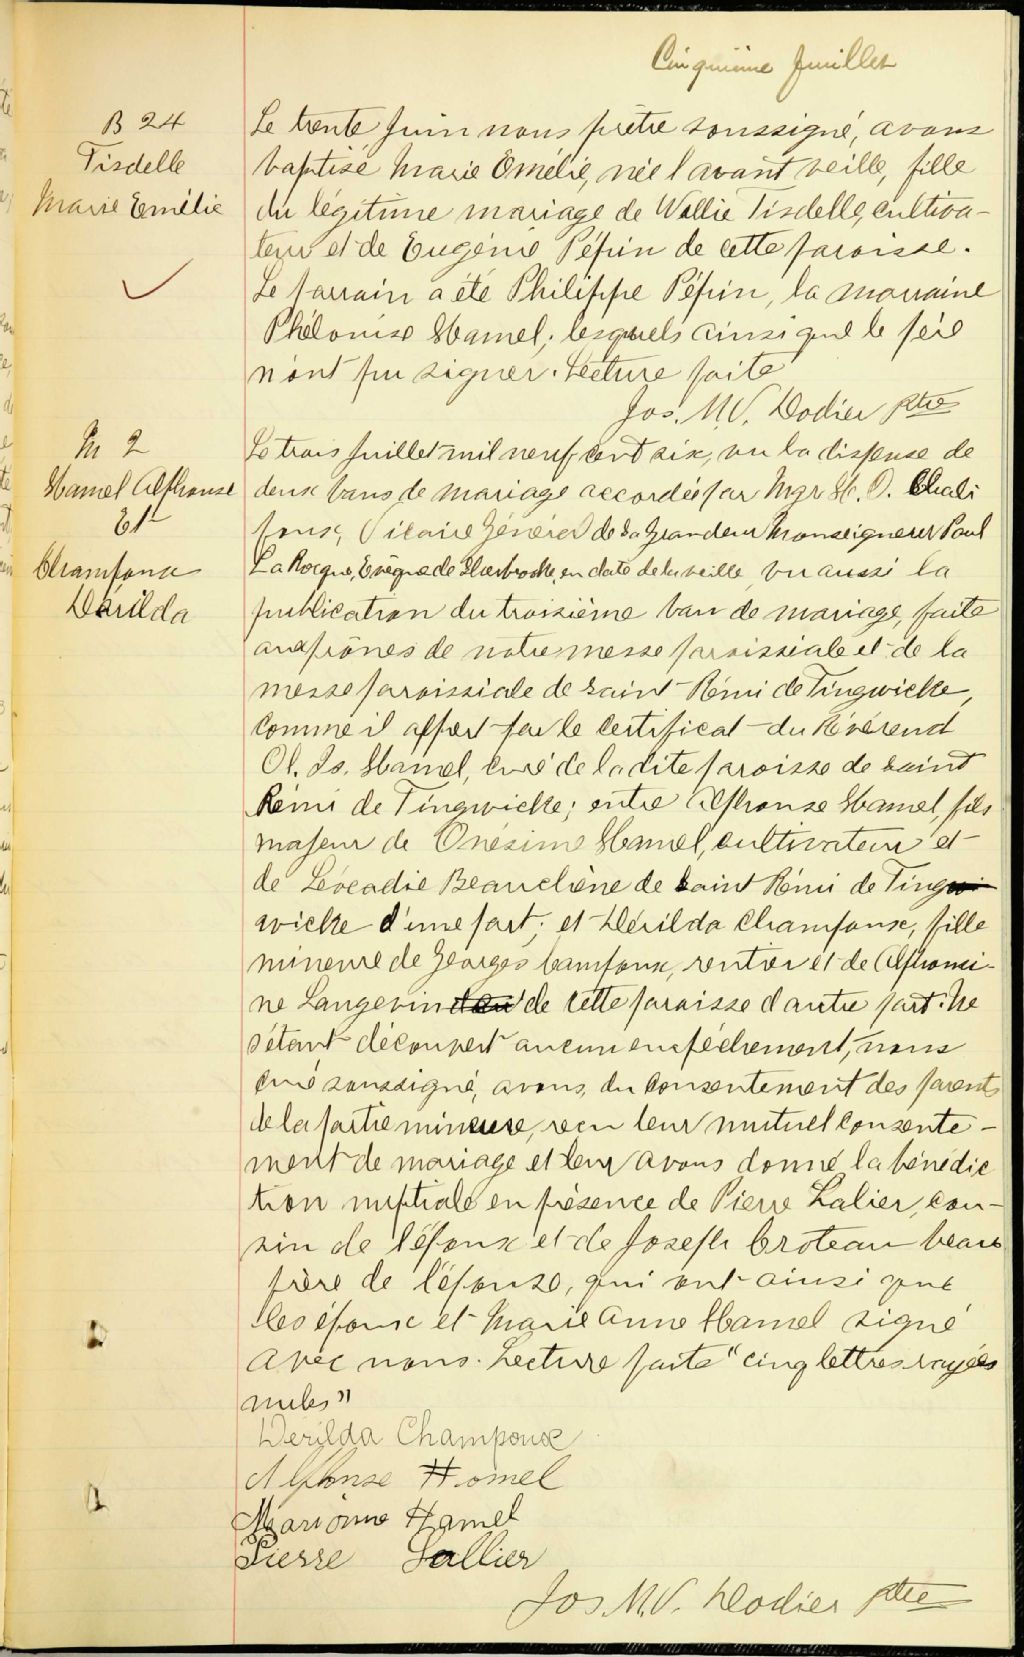 Cinquième feuillet
B 24
Tisdelle
Marie Emélie
Le trente Juin nous prêtre soussigné, avons
baptisé Marie Emélie, née l'avant veille, fille
du légitime mariage de Wollie Tisdelle, cultiva-
teur et de Eugénie Pépin de cette paroisse.
Le parrain a été Philippe Pépin, la marraine
Phélonise Hamel; lesquels ainsi que le père
n'ont pu signer. Lecture faite
Jos. M. V. Dodier ptre
M 2
Hamel Alphonse
Et
Champoux
Dérilda
Le trois Juillet mil neuf cent six, vu la dispense de
deux bans de mariage accordée par Mgr H. O. Chali
foux, Vicaire Général de Sa Grandeur Monseigneur Paul
LaRocque, Evêque de Sherbrooke, en date de la veille, vu aussi la
publication du troisième ban de mariage, faite
aux prônes de notre messe paroissiale et de la
messe paroissiale de Saint Rémi de Tingwicke,
comme il appert par le certificat du Révérend
Ol. Is. Hamel, curé de la dite paroisse de Saint
Rémi de Tingwicke; entre Alphonse Hamel, fils
majeur de Onésime Hamel, cultivateur et
de Léocadie Beauchêne de Saint Rémi de Ting
wicke d'une part; et Dérilda Champoux, fille
mineure de Georges Campoux, rentier et de Alphonsi-
ne Langevin de cette paroisse d'autre part. Ne
s'étant découvert aucun empêchement, nous
curé soussigné, avons, du consentement des parents
de la partie mineure, reçu leur mutuel consente-
ment de mariage et leur avons donné la bénédic
tion nuptiale en présence de Pierre Lalier, cou-
sin de l'époux et de Joseph Croteau beau
frère de l'épouse, qui ont ainsi que
les époux et Marie Anne Hamel signé
avec nous. Lecture faite "cinq lettres rayées
nules"
Dérilda Champoux
Alphonse Hamel
Marianne Hamel
Pierre Lallier
Jos. M. V. Dodier ptre